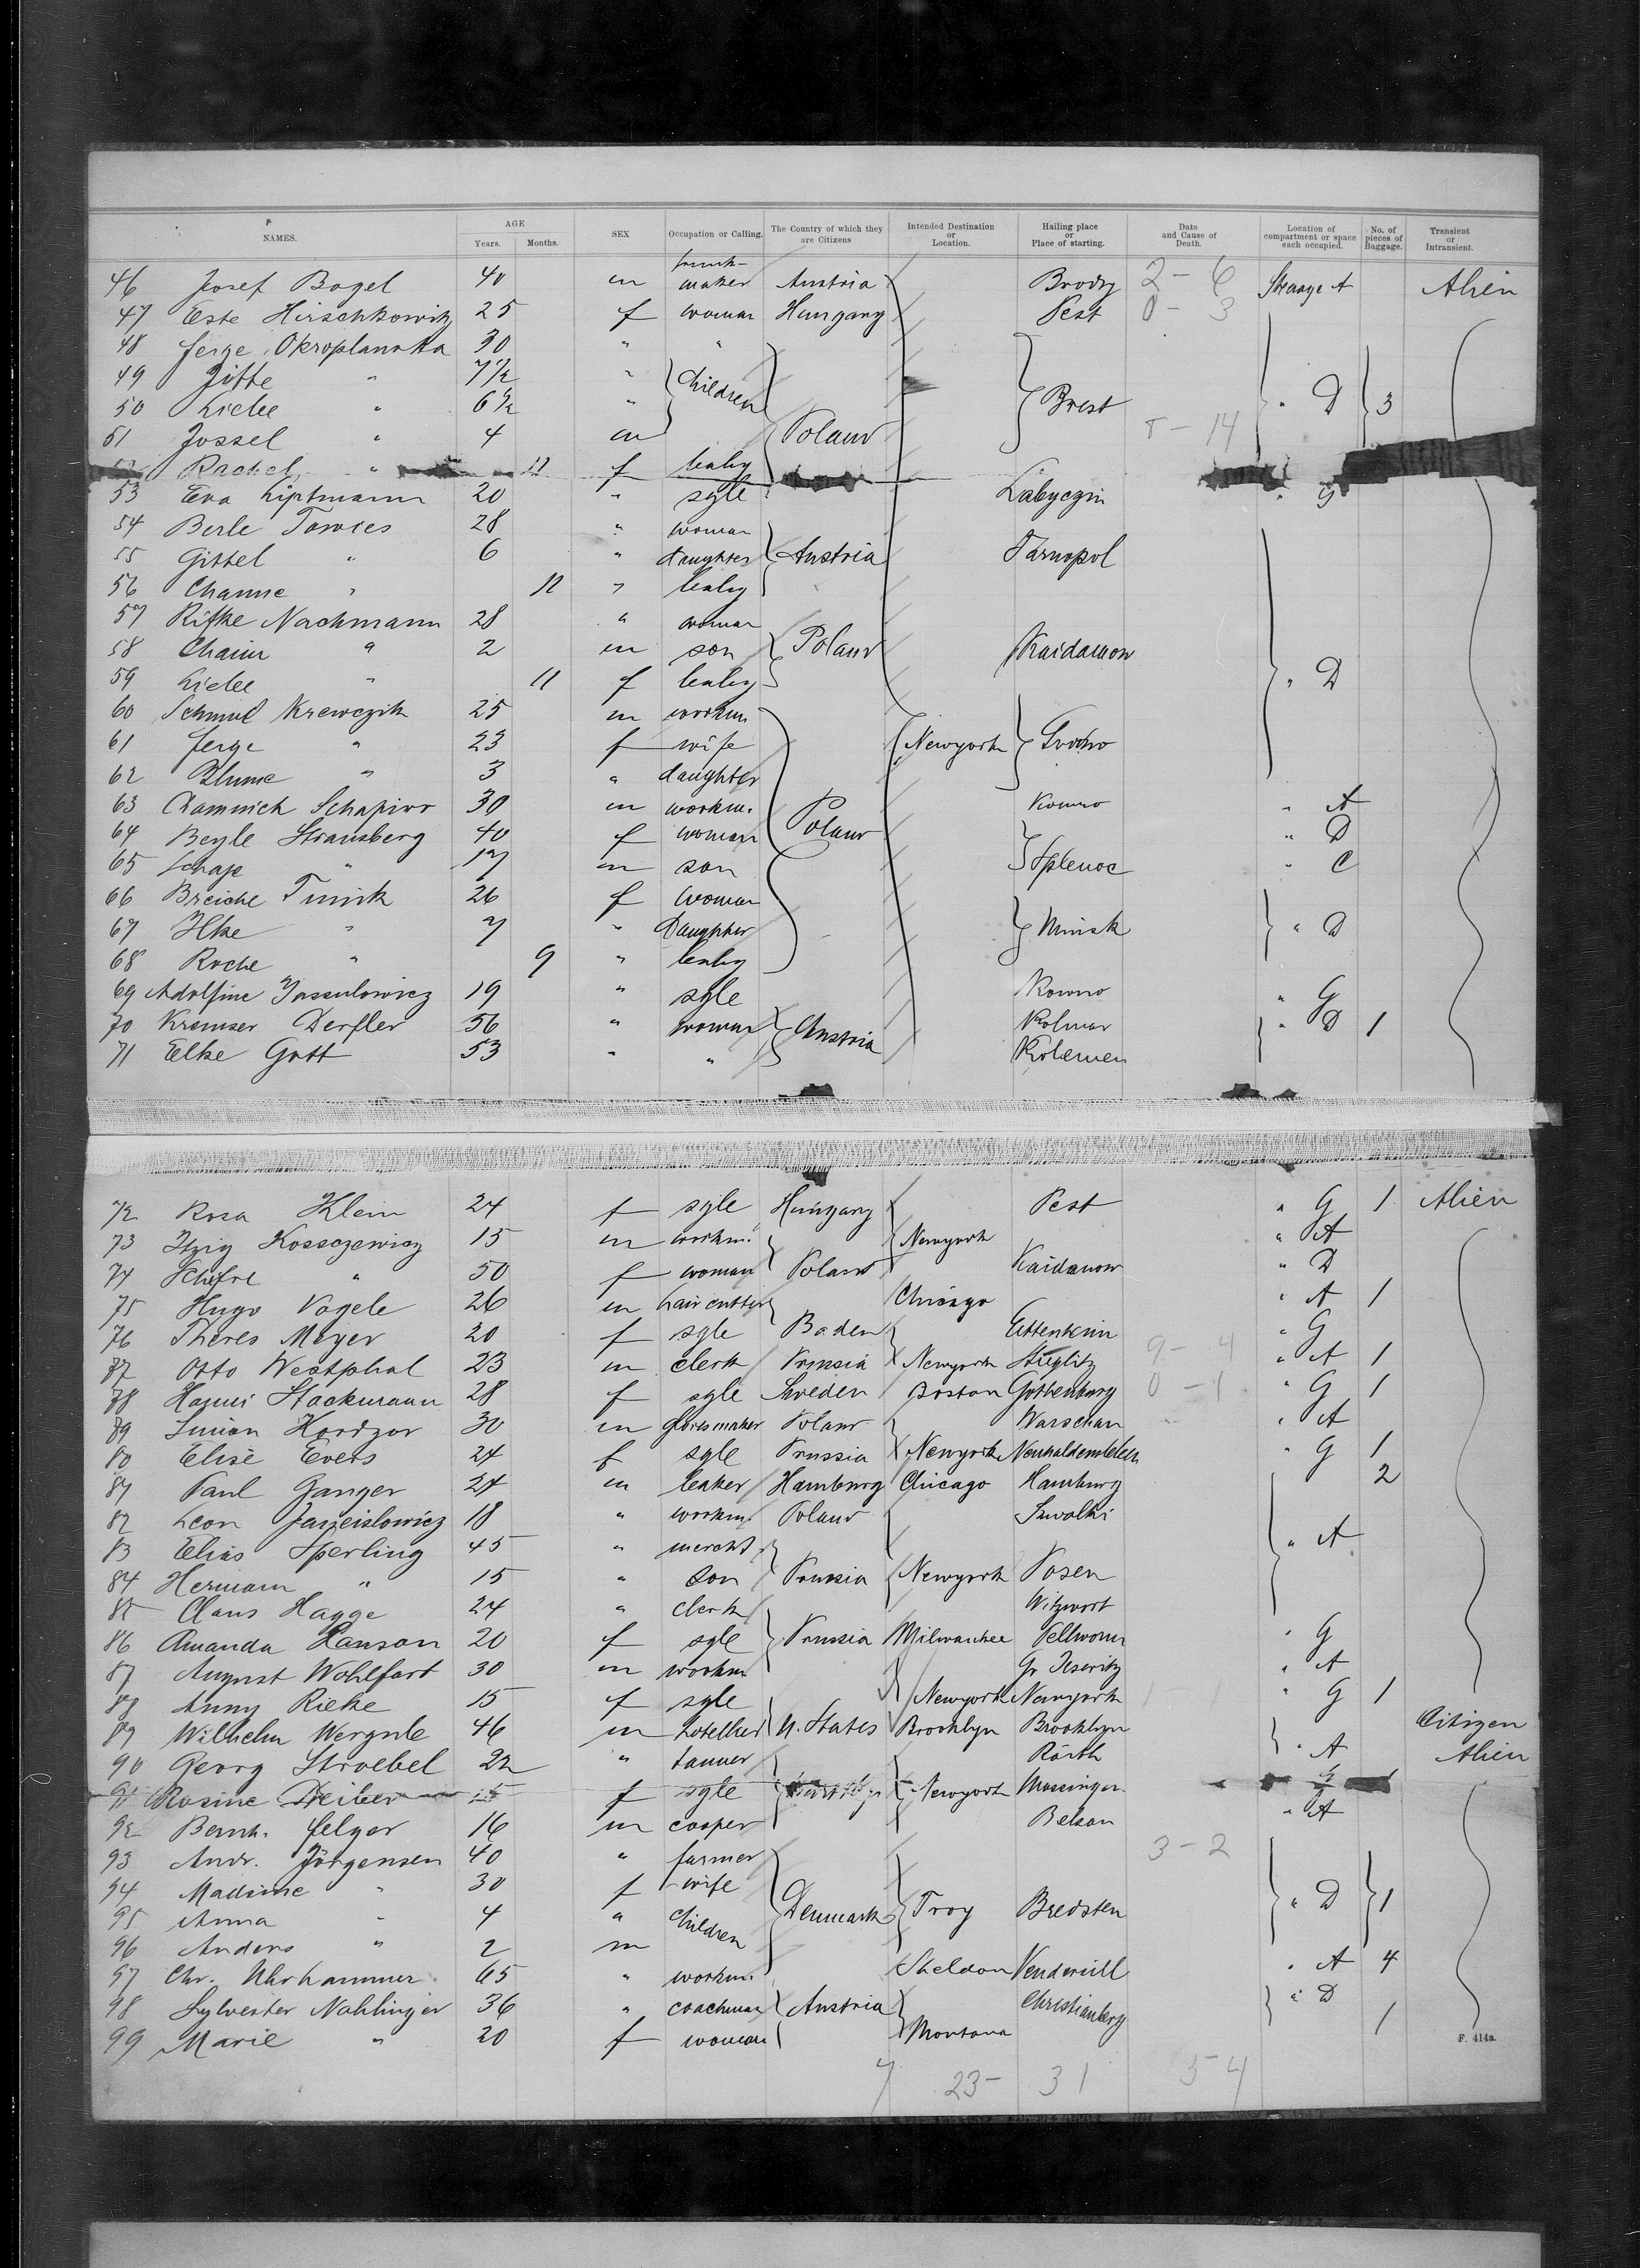 NAMES. AGE Years. Months. SEX Occupation or Calling. The Country of which they are Citizens Intended Destination or Location. Hailing place or Place of starting. Date and Cause of Death. Location of compartment or space each occupied. No. of pieces of Baggage. Transient or Intransient.
46 Josef Bogel 40 m maker Austria Brody 2 - 6 Steerage A Alien
47 Este Hirschkowitz 25 f woman Hungary Pest 0 - 3
48 30 " "
49 Jitte " 7½ " Children
50 Liebe " 6½ " Brest " D 3
51 Jossel " 4 m Poland 5 - 14
Rachel " 11 f baby
53 Eva Liptmann 20 " sgle " G
54 Berle 28 " woman
55 Gittel " 6 " daughter Austria Tarnopol
56 Channe " 11 " baby
57 Rifke Nachmann 28 " woman
58 Chaim " 2 m son Poland Kaidanow
59 Liebe " 11 f baby " D
60 Schmul Krewczik 25 m workm.
61 " 23 f wife Newyork Grodno
62 Blume " 3 " daughter
63 Schapiro 30 m workm. Kowno " A
64 Beyle Strausberg 40 f woman Poland " D
65 " 17 m son " C
66 Breiche 26 f woman
67 " 7 " Daughter Minsk " D
68 Roche " 9 " baby
69 Adolfine 19 " sgle Kowno " G
70 Kremser Derfler 56 " woman Austria Kolmar " D 1
71 Elke Gott 53 " "
72 Rosa Klein 24 f sgle Hungary Pest " G 1 Alien
73 Itzig Kossczewicz 15 m workm. Newyork " A
74 Schifre " 50 f woman Poland Kaidanow " D
75 Hugo Vogele 26 m hair cutter Chicago " A 1
76 Theres Meyer 20 f sgle Baden Ettenheim " G
77 Otto Westphal 23 m clerk Prussia Newyork Stieglitz 9 - 4 " A 1
78 Stackmann 28 f sgle Sweden Boston Gothenburg 0 - 1 " G 1
79 Simon Hordzor 30 m Poland Warschau " A
80 Elise Evers 24 f sgle Prussia Newyork Neuhaldensleben " G 1
81 Paul Ganger 24 m baker Hamburg Chicago Hamburg 2
82 Leon 18 " workm. Poland Suwalki
83 Elias Sperling 45 " mercht. " A
84 Hermann " 15 " son Prussia Newyork Posen
85 Claus Hagge 24 " clerk Witzwort
86 Amanda Hanson 20 f sgle Prussia Milwaukee Pellworm " G
87 August Wohlfart 30 m workm " A
88 Anny Rieke 15 f sgle Newyork Newyork 1 - 1 " G 1
89 Wilhelm 46 m hotellier U. States Brooklyn Brooklyn Citizen
90 Georg Stroebel 22 " tanner " A Alien
91 Rosine Deiber f sgle Newyork Mossingen
92 Bernh. Felger 16 m cooper Belsen " A
93 Andr. Jörgensen 40 " farmer 3 - 2
94 Madsine " 30 f wife
95 Anna " 4 " Children Denmark Troy Bredsten " D 1
96 Anders " 2 m
97 Chr. 65 " workm. Sheldon " A 4
98 Sylvester Nahlinger 36 " coachman Austria Christianberg " D
99 Marie " 20 f woman Montana 1
F. 414a.
7 23- 31 5-4